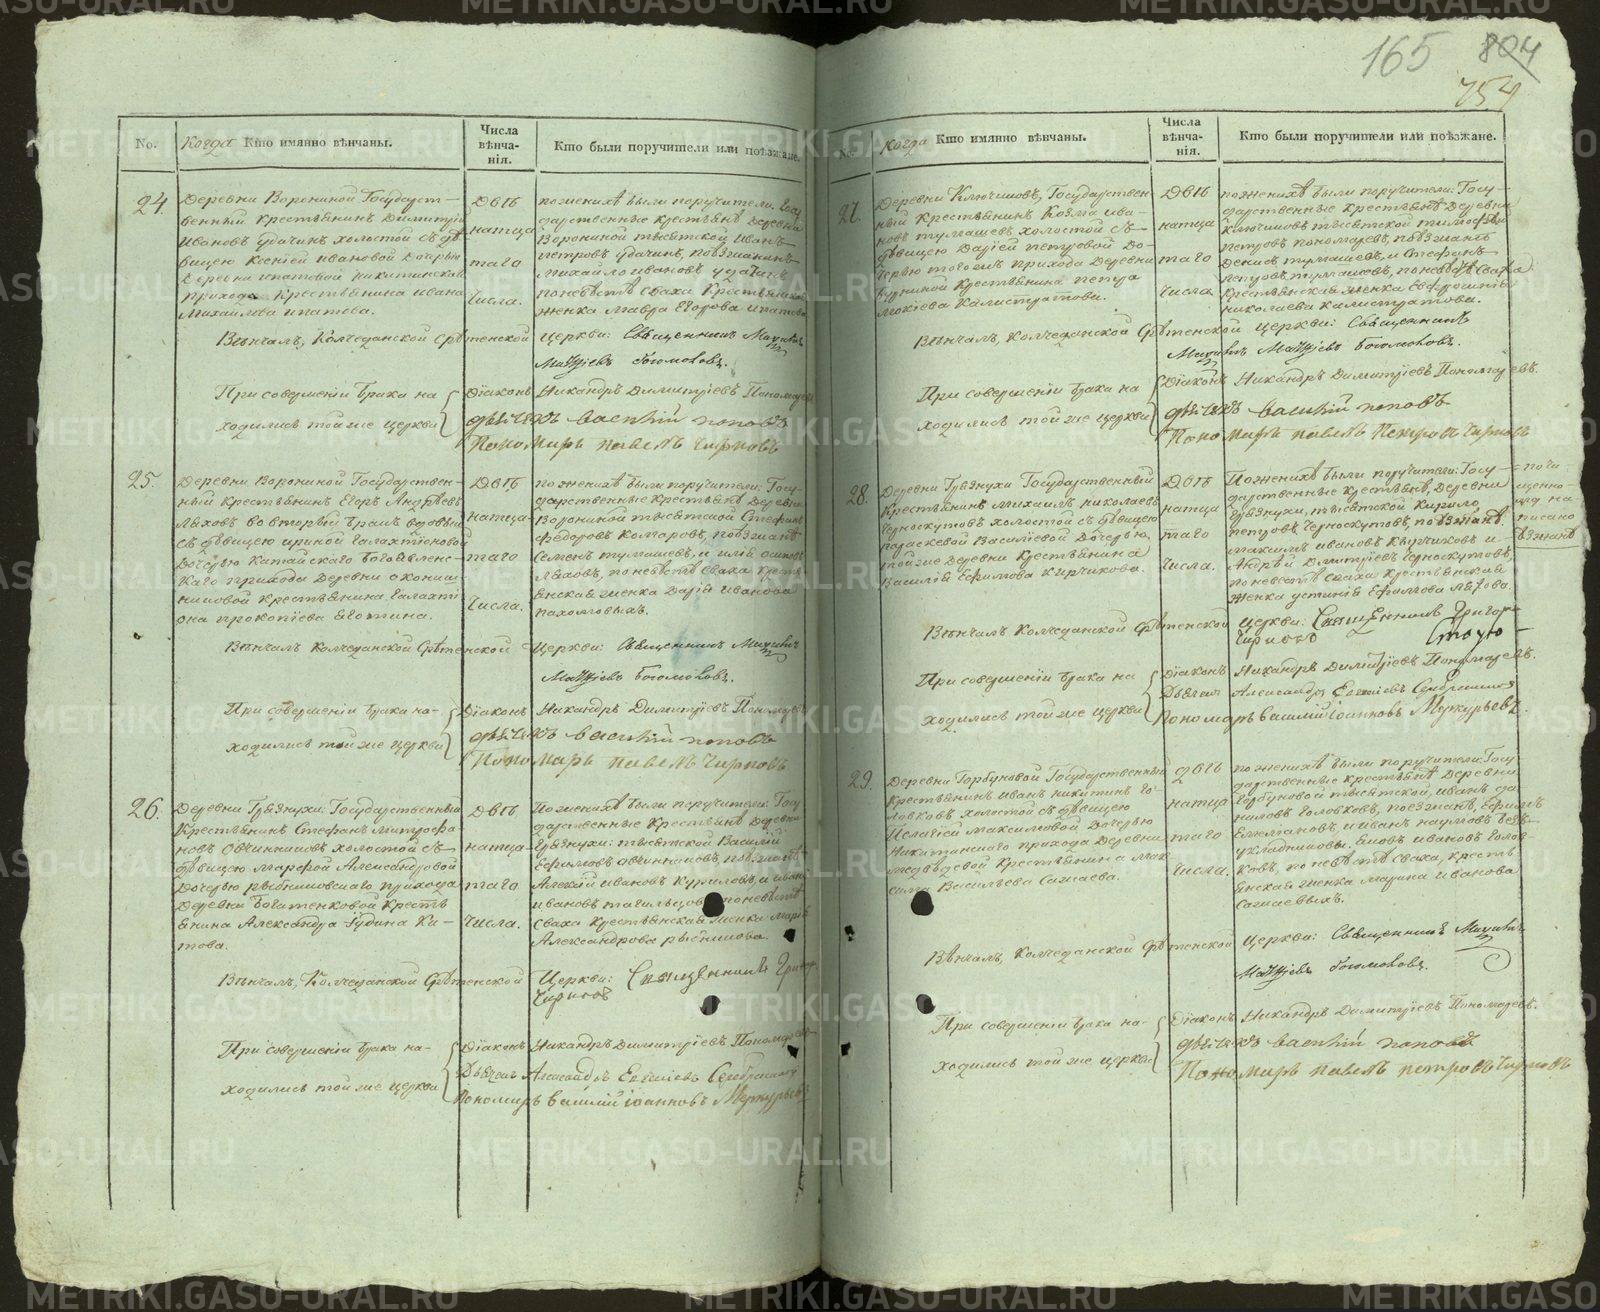 165 804
754
No.
Когда Кто имянно вѣнчаны.
Числа вѣнча-нія.
Кто были поручители или поѣзжане.
24.
Деревни Ворониной Государст-
венный крестьянинъ Димитрій
Ивановъ Удачинъ холостой съ дѣ-
вицею Ксеніей Ивановой Дочерью
Деревни Ипатовой Никитинскаго
прихода Крестьянина Ивана
Михайлова Ипатова.
Двѣ
натца
таго
числа.
по женихѣ были поручители: Госу
дарственные крестьяне Деревни
Ворониной тысятской Иванъ
Петровъ Удачинъ, поѣзжанинъ
Михайло Ивановъ Удачинъ
по невѣстѣ сваха Крестьянская
женка Мавра Егорова Ипатова
Вѣнчалъ, Колчеданской Срѣтенской церкви: Священникъ
Матфіевъ Богомоловъ.
При совершеніи брака на
ходились той же церкви
Діаконъ Никандръ Димитріевъ Пономаревъ
дьячекъ Василій Поповъ
Пономарь Павелъ Чирковъ
25.
Деревни Ворониной Государствен-
ный крестьянинъ Егоръ Андрѣевъ
Ляховъ во вторый бракъ вдовый
съ дѣвицею Ириной Галахтіоновой
Дочерью Катайскаго Богоявленс-
каго прихода Деревни
крестьянина Галахті
она Прокопіева
Двѣ
натца
таго
числа.
по женихѣ были поручители: Госу-
дарственные крестьяне Деревни
Ворониной тысятской Стефанъ
Федоровъ Комаровъ, поѣзжане
Семенъ Тумашевъ, и Илія
Ляховъ, по невѣстѣ сваха кресть
янская женка Дарія Иванова
Пахомовыхъ.
Вѣнчалъ Колчеданской Срѣтенской Церкви: Священникъ
Матфіевъ Богомоловъ.
При совершеніи брака на-
ходились той же церкви
Діаконъ Никандръ Димитріевъ Пономаревъ
дьячекъ Василій Поповъ
Пономарь Павелъ Чирковъ
26.
Деревни Грязнухи: Государственный
Крестьянинъ Стефанъ Митрофа
новъ Овчинниковъ холостой съ
дѣвицею Марфой Александровой
Дочерью Рыбниковскаго прихода
Деревни Богатенковой Кресть
янина Александра Іудина Ки-
това.
Двѣ
натца
таго
числа.
По женихѣ были поручители: Госу
дарственные крестьяне Деревни
Грязнухи: тысятской Василій
Ефимовъ Овчинниковъ, поѣзжане
Алексій Ивановъ Куриловъ, и Иванъ
Ивановъ по невѣстѣ
сваха Крестьянская женка Марія
Александрова
Вѣнчалъ, Колчеданской Срѣтенской Церкви: Священникъ Григорій
Чирковъ
При совершеніи брака на-
ходились той же церкви
Діаконъ Никандръ Димитріевъ Пономаревъ
Дьячекъ Александръ Серебренниковъ
Пономарь Василій Іоанновъ Меркурьевъ
No.
Когда Кто имянно вѣнчаны.
Числа вѣнча-нія.
Кто были поручители или поѣзжане.
27.
Деревни Ключиковъ, Государствен-
ный крестьянинъ Козма Ива-
новъ Тумашевъ холостой съ
дѣвицею Даріей Петровой До-
черью того же прихода Деревни
Бурниной крестьянина Петра
Мокіева Калистратова.
Двѣ
натца
таго
числа.
по женихѣ были поручители: Госу-
дарственные крестьяне Деревни
Ключиковъ тысятской Тимофей
Петровъ Пономаревъ, поѣзжане
Денисъ Тумашевъ, и Стефанъ
Петровъ Тумашевъ, по невѣстѣ сваха
крестьянская женка Евфросинія
Николаева Калистратова.
Вѣнчалъ, Колчеданской Срѣтенской церкви: Священникъ
Матфіевъ Богомоловъ.
При совершеніи брака на
ходились той же церкви
Діаконъ Никандръ Димитріевъ Пономаревъ.
дьячекъ Василій Поповъ
Пономарь Павелъ Петровъ Чирковъ
28.
Деревни Грязнухи Государственный
Крестьянинъ Михаилъ Николаевъ
Черноскутовъ холостой съ дѣвицею
Параскевой Василіевой Дочерью
той же деревни крестьянина
Василія Ефимова Кирчикова.
Двѣ
натца
таго
числа.
По женихѣ были поручители: Госу-
дарственные крестьяне, Деревни
Грязнухи, тысятской Кирило
Петровъ Черноскутовъ, поѣзжане
Максимъ Ивановъ и
Андрей Дмитріевъ Черноскутовъ,
по невѣстѣ сваха крестьянская
женка Устинія Ефимова
по чи
щенно-
му на
писано
ѣзжане
Вѣнчалъ Колчеданской Срѣтенской церкви: Священникъ Григорій
Чирковъ
При совершеніи брака на
ходились той же церкви
Діаконъ Никандръ Димитріевъ Пономаревъ.
Дьячекъ Александръ Серебренниковъ
Пономарь Василій Іоанновъ Меркурьевъ.
29.
Деревни Горбуновой Государственный
Крестьянинъ Иванъ Никитинъ Го-
ловковъ холостой съ дѣвицею
Пелагіей Максимовой Дочерью
Никитинскаго прихода Деревни
крестьянина Мак
сима Васильева
двѣ
натца
таго
числа.
по женихѣ были поручители: Госу
дарственные крестьяне Деревни
Горбуновой тысятской, Иванъ Да
ниловъ Головковъ, поѣзжане, Ефимъ
и Иванъ Наумовъ
Ивановъ Голов
ковъ, по невѣстѣ сваха, кресть
янская женка Марина Иванова
Вѣнчалъ, Колчеданской Срѣтенской Церкви: Священникъ
Матфіевъ Богомоловъ.
При совершеніи брака на-
ходились той же церкви
Діаконъ Никандръ Димитріевъ Пономаревъ.
дьячекъ Василій Поповъ
Пономарь Павелъ Петровъ Чирковъ
METRIKI.GASO-URAL.RU